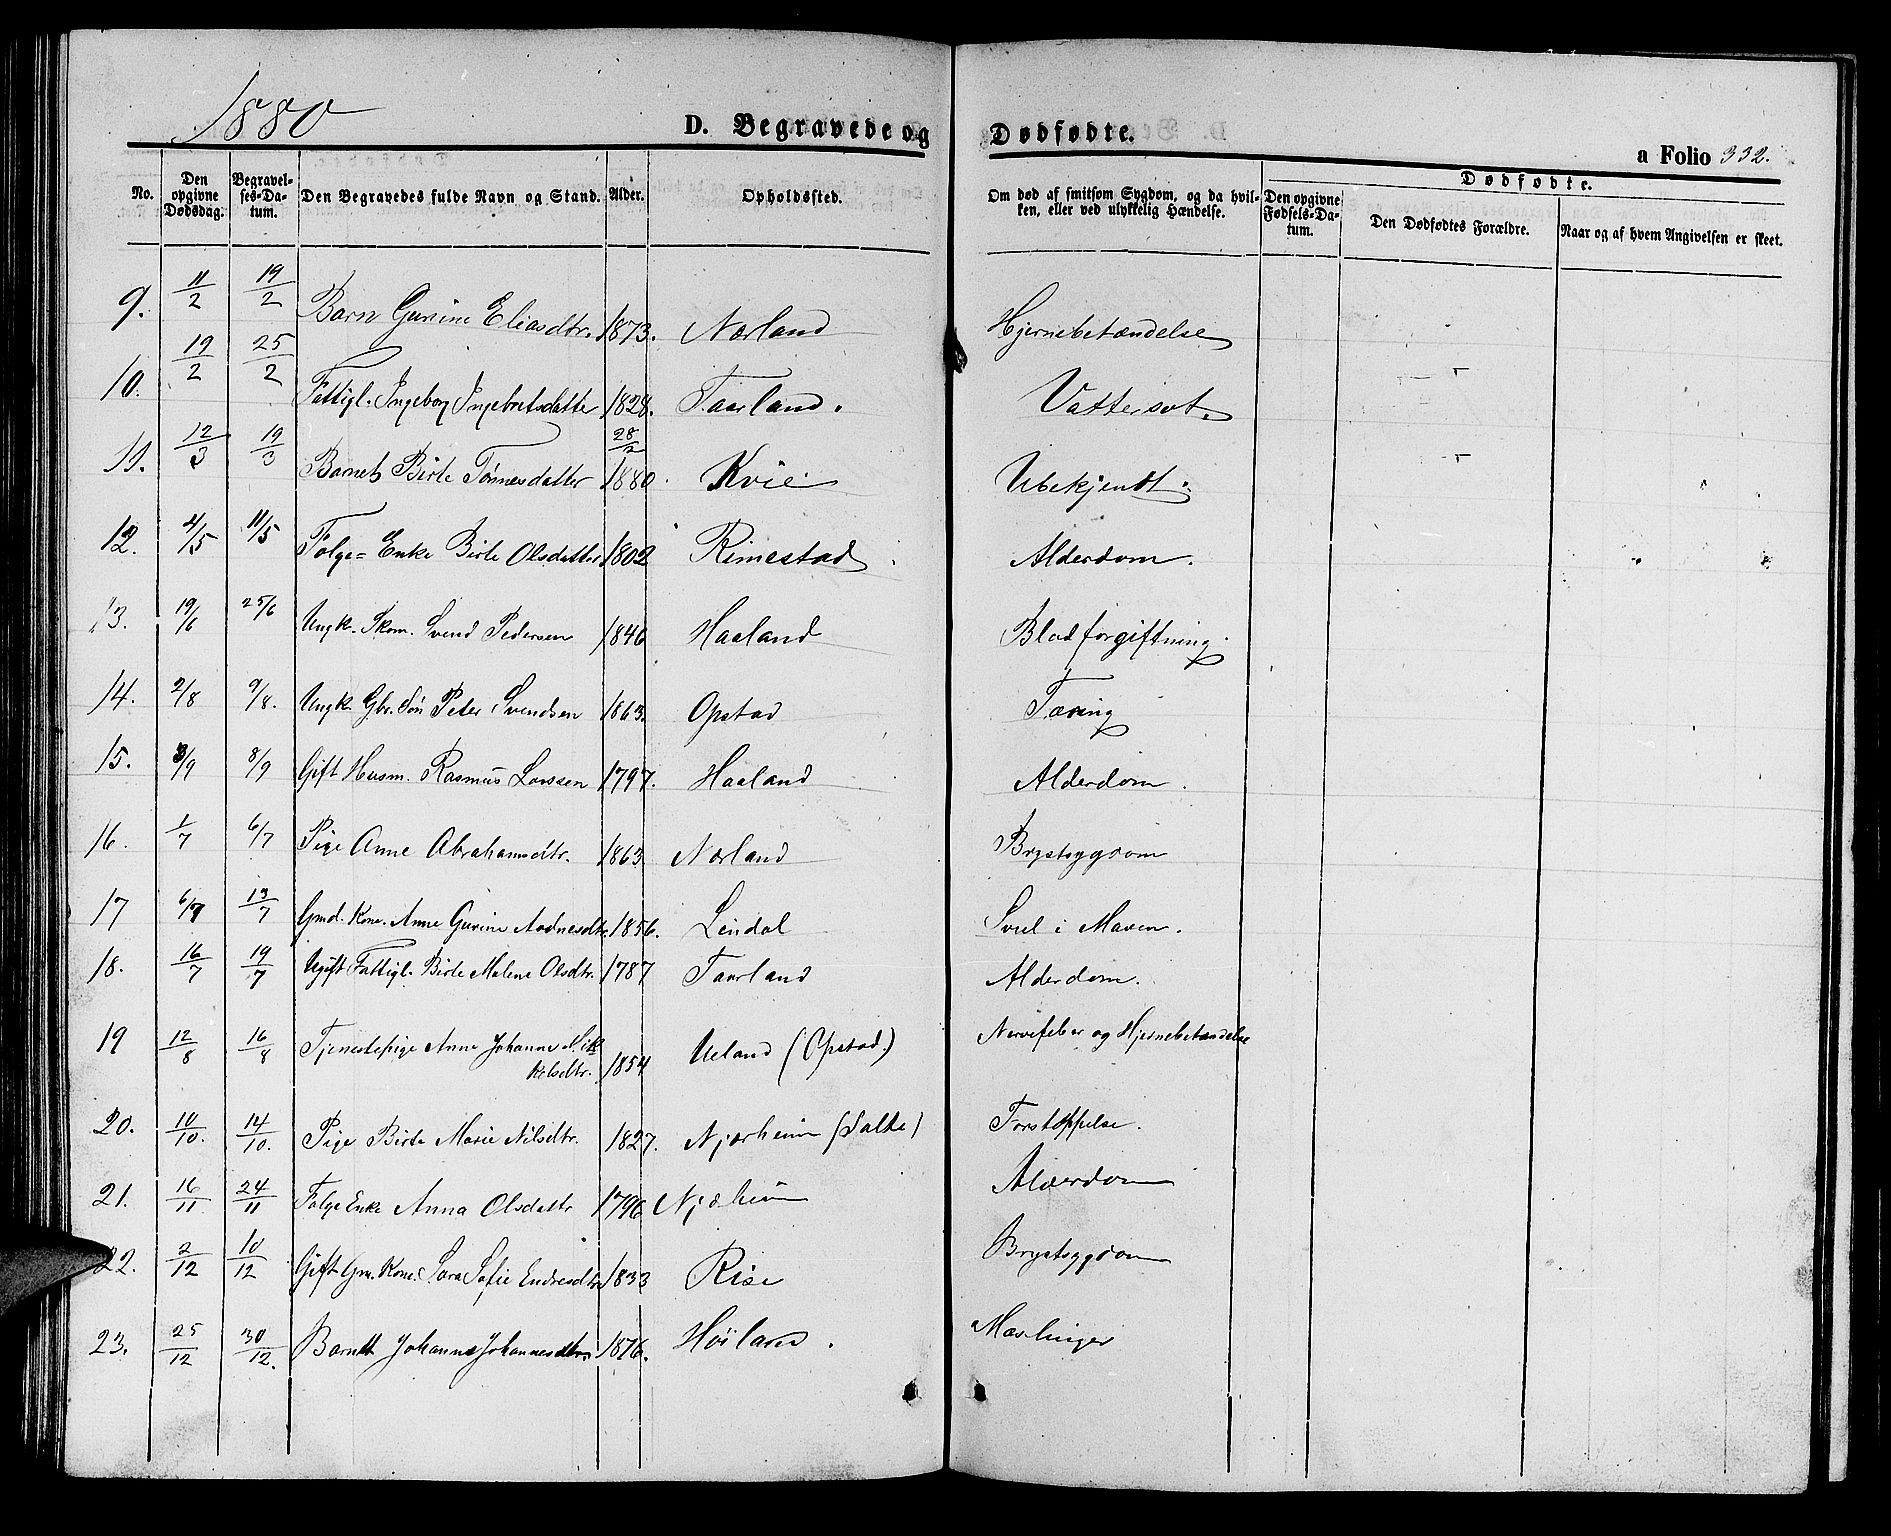 1880
D. Begravede og Dødfødte.
a Folio 332.
No. | Den opgivne Dødsdag. | Begravelses-Datum. | Den Begravedes fulde Navn og Stand. | Alder. | Opholdssted. | Om død af smitsom Sygdom, og da hvilken, eller ved ulykkelig Hændelse. | Dødfødte. | Den opgivne Fødsels-Datum. | Den Dødfødtes Forældre. | Naar og af hvem Angivelsen er skeet.
9. | 11/2 | 19/2 | Barn Gurine Eliasdtr. | 1873. | Nærland | Hjernebetændelse
10. | 19/2 | 25/2 | Fattigl. Ingeborg Ingebretsdatter | 1828. | Taarland. | Vattersot.
11. | 12/3 | 19/3 | Barnet Birte Tønnesdatter | 28/2 1880. | Kvie | Ubekjendt.
12. | 4/5 | 11/5 | Folge= Enke Birte Olsdatter | 1802 | Rimestad | Alderdom.
13. | 19/6 | 25/6 | Ungk. Skom. Svend Pedersen | 1846 | Haaland | Blodforgiftning.
14. | 2/8 | 9/8. | Ungk. Gbr. Søn Peter Svendsen | 1863. | Opstad | Tæring
15. | 3/9 | 8/9 | Gift Husm. Rasmus Larssen | 1797. | Haaland | Alderdom.
16. | 1/7 | 6/7 | Pige Anne Abrahamsdtr. | 1863 | Nærland | Brystsygdom
17 | 6/7 | 13/7 | Gmd. Kone. Anne Gurine Aadnesdtr | 1856. | Lindal | Svul i Maven.
18. | 16/7 | 19/7 | Ugift Fattigl. Birte Malene Olsdtr. | 1787 | Taarland | Alderdom.
19 | 12/8 | 16/8 | Tjenestepige Anne Johanne Mik
kelsdtr. | 1854 | Ueland (Opstad.) | Nervefeber og Hjernebetændelse
20. | 10/10. | 14/10. | Pige Birte Marie Nilsdtr. | 1827. | Njærheim (Salte) | Forstoppelse.
21. | 16/11 | 24/11 | Folge Enke Anna Olsdattr | 1796 | Njæheim | Alderdom
22. | 2/12 | 10/12 | Gift Gm. Kone. Sara Sofie Endresdtr | 1833 | Rise | Brystsygdom
23. | 25/12 | 30/12. | Barnet Johanne Johannesdtr. | 1876. | Høiland. | Mæslinger